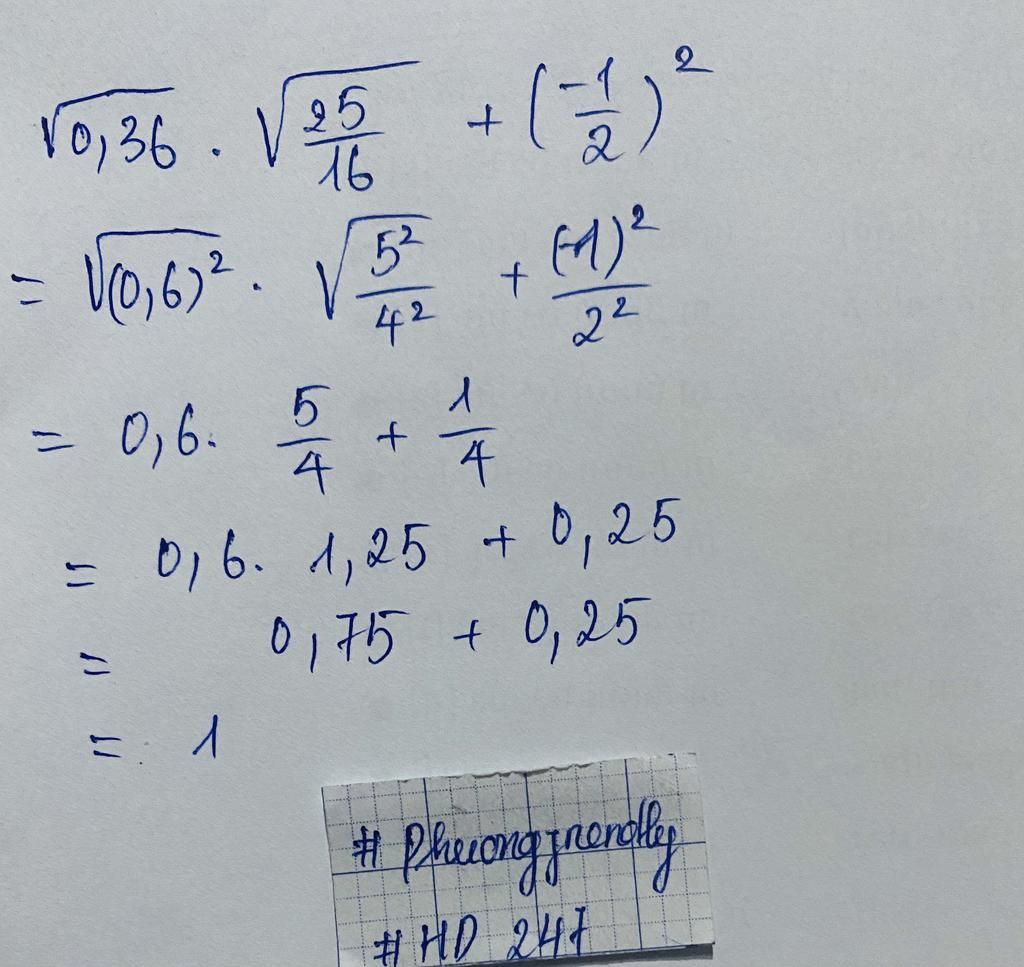 √0,36 . √25/16 + (-1/2)²
= √(0,6)² . √5²/4² + (-1)²/2²
= 0,6. 5/4 + 1/4
= 0,6. 1,25 + 0,25
= 0,75 + 0,25
= 1
# Phuongfriendlly
# HD 247